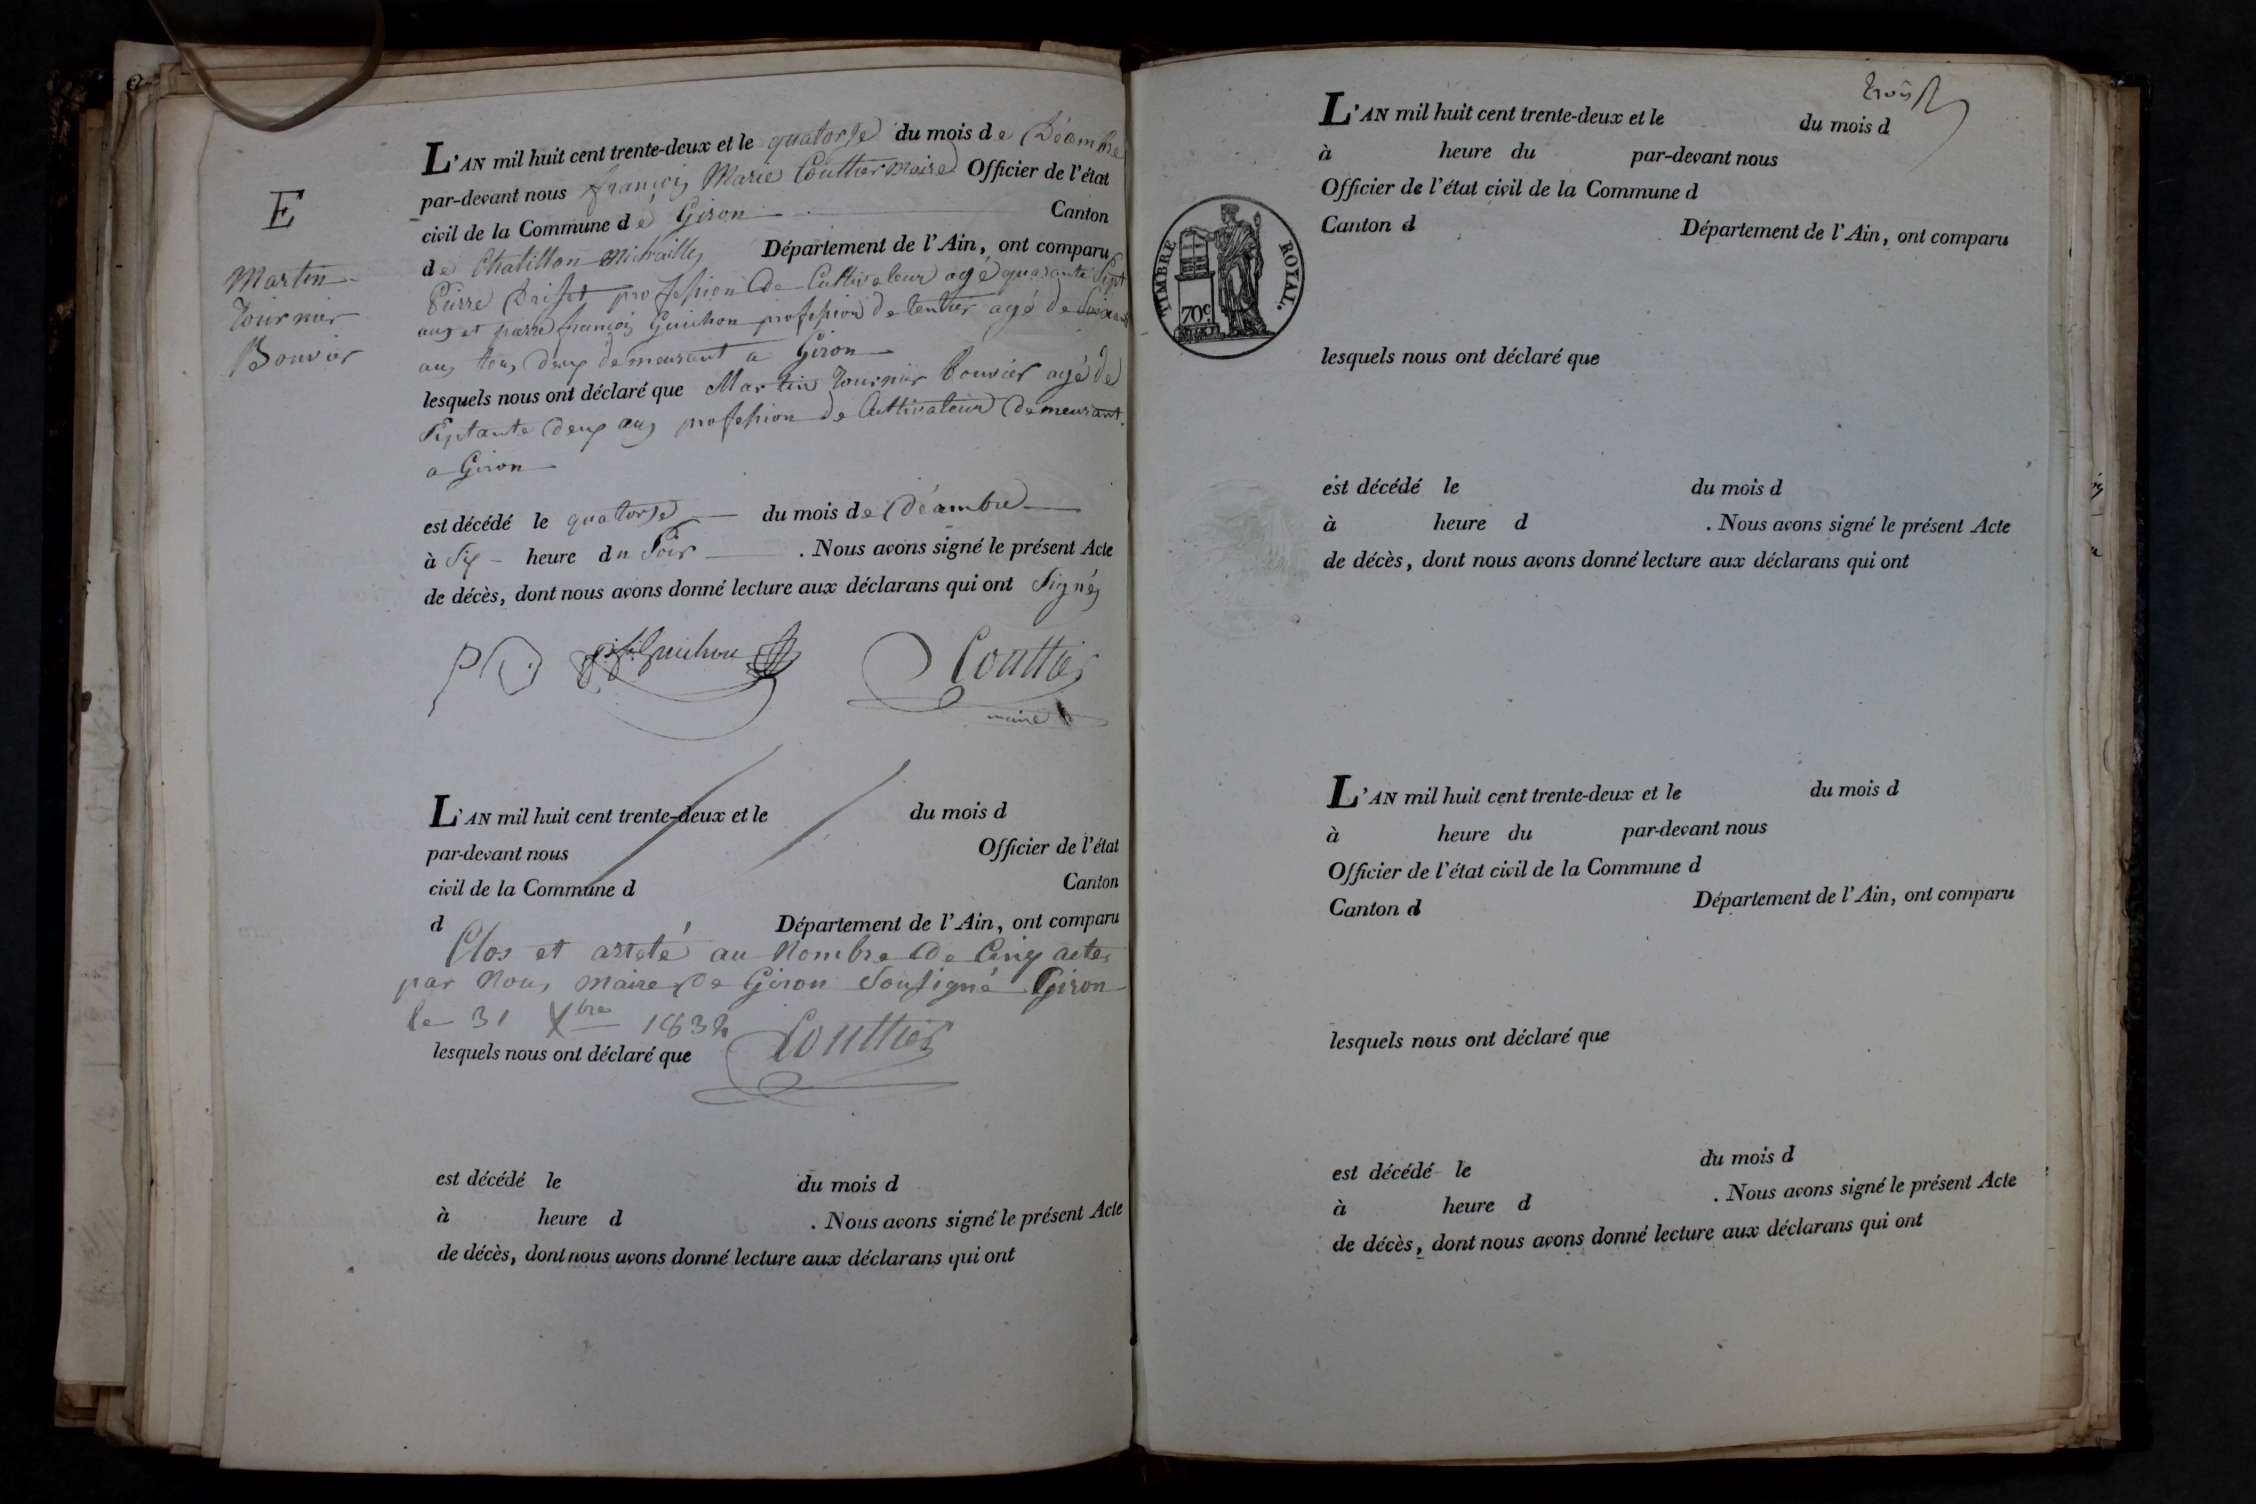 E
Martin
Tournier
Bouvier
L'AN mil huit cent trente-deux et le quatorse du mois de Décembre
par-devant nous françois Marie Couttier maire Officier de l'état
civil de la Commune de Giron Canton
de Chatillon Michaille, Département de l'Ain, ont comparu
Pierre profession de Cultivateur agé quarante Sept
ans et pierre françois Guichon profession de rentier agé de Soixante
ans tous deux demeurant a Giron
lesquels nous ont déclaré que Martin Tournier Bouvier agé de
Septante deux ans profession de Cultivateur demeurant
a Giron
est décédé le quatorse du mois de Décembre
à Six heure du Soir . Nous avons signé le présent Acte
de décès, dont nous avons donné lecture aux déclarans qui ont Signés
Guichon Couttier
maire
L'AN mil huit cent trente-deux et le du mois d
par-devant nous Officier de l'état
civil de la Commune d Canton
d Département de l'Ain, ont comparu
Clos et arreté au Nombre de Cinq actes
par Nous maire de Giron Soussigné Giron
le 31 Xbre 1832
lesquels nous ont déclaré que Couttier
est décédé le du mois d
à heure d . Nous avons signé le présent Acte
de décès, dont nous avons donné lecture aux déclarans qui ont
L'AN mil huit cent trente-deux et le du mois d
à heure du par-devant nous
Officier de l'état civil de la Commune d
Canton d Département de l'Ain, ont comparu
TIMBRE ROYAL.
70c
lesquels nous ont déclaré que
est décédé le du mois d
à heure d . Nous avons signé le présent Acte
de décès, dont nous avons donné lecture aux déclarans qui ont
L'AN mil huit cent trente-deux et le du mois d
à heure du par-devant nous
Officier de l'état civil de la Commune d
Canton d Département de l'Ain, ont comparu
lesquels nous ont déclaré que
est décédé le du mois d
à heure d . Nous avons signé le présent Acte
de décès, dont nous avons donné lecture aux déclarans qui ont